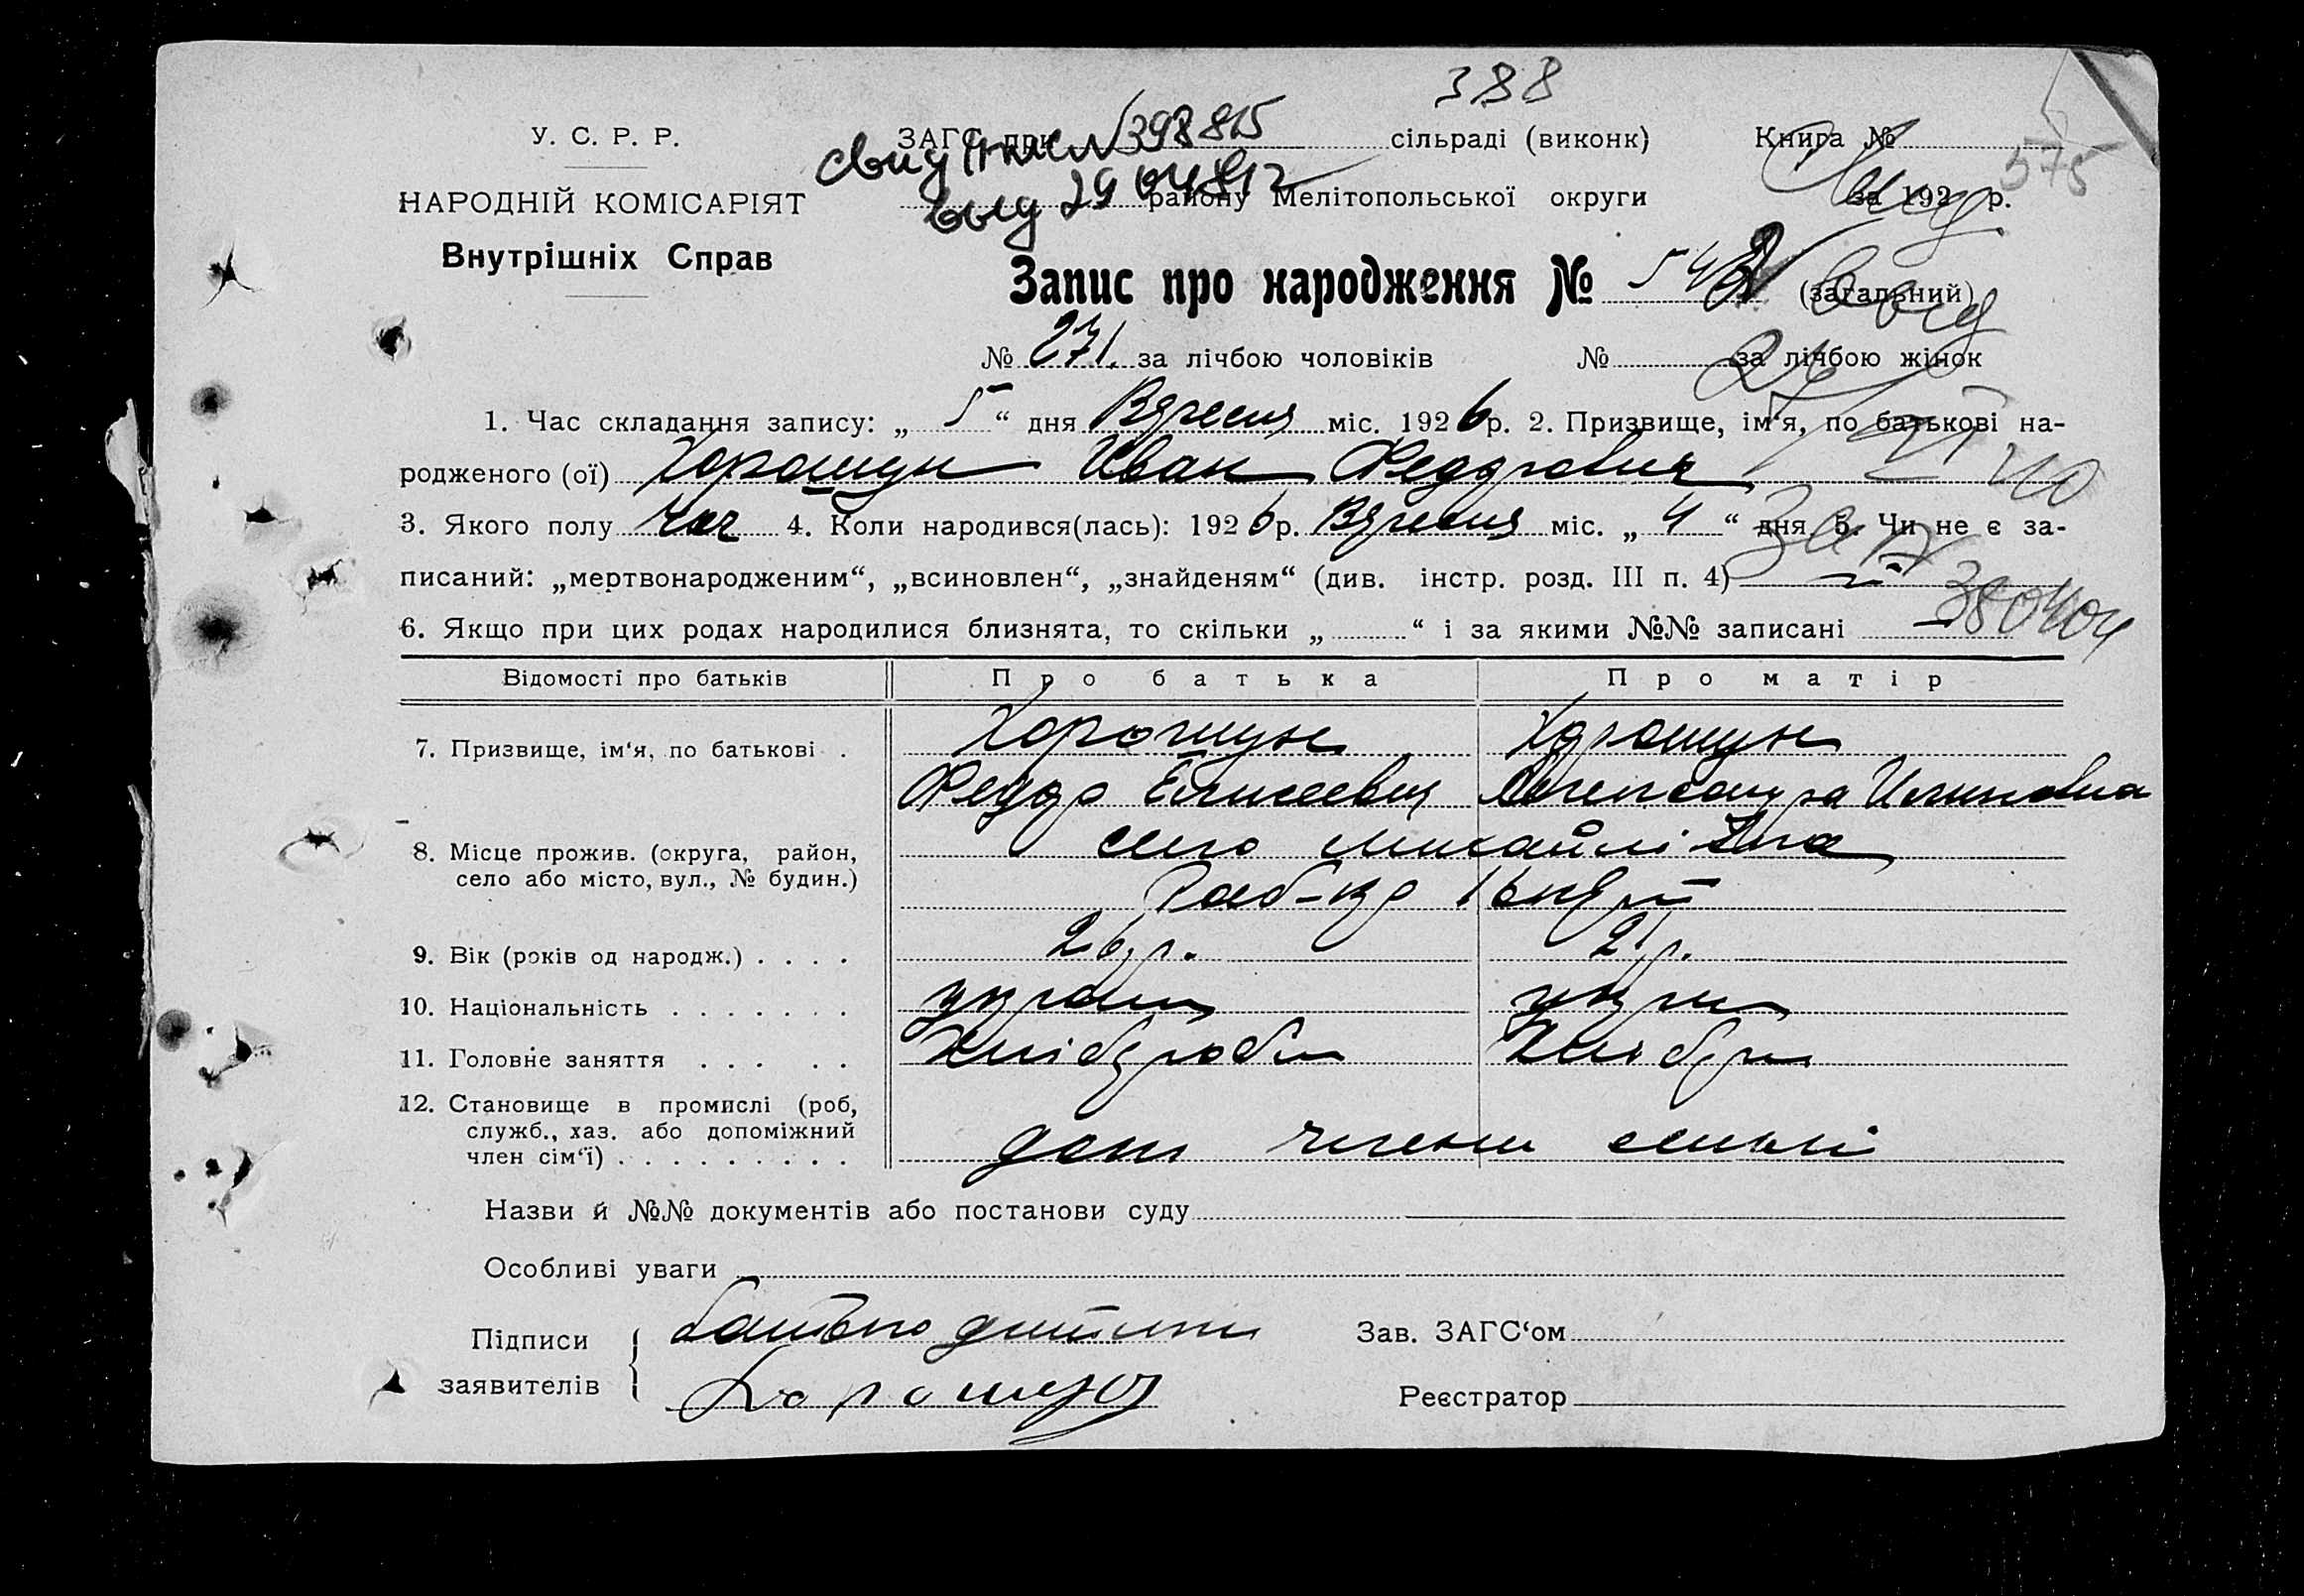 388
У. С. Р. Р. ЗАГС при сільраді (виконк) Книга №
свид № 398815
575
НАРОДНІЙ КОМІСАРІЯТ району Мелітопольської округи за 192 р.
выд 29
Внутрішніх Справ
Запис про народження № 542 (загальний)
№ 271. за лічбою чоловіків № за лічбою жінок
1. Час складання запису: „ 5 “ дня Вересня міс. 1926 р. 2. Призвище, ім‘я, по батькові на-
родженого (ої) Хорошун Иван Федорович
3. Якого полу чол 4. Коли народився(лась): 1926 р. Вересня міс. „ 4 “ дня 5. Чи не є за-
писаний: „мертвонародженим“, „всиновлен“, „знайденям“ (див. інстр. розд. III п. 4)
380404
6. Якщо при цих родах народилися близнята, то скільки „ “ і за якими №№ записані —
Відомості про батьків Про батька Про матір
7. Призвище, ім‘я, по батькові . Хорошун Хорошун
Федор Елисеевич Александра
8. Місце прожив. (округа, район, село Михайлівка
село або місто, вул., № будин.)
9. Вік (років од народж.) . . . . 26 р. 21 р.
10. Національність . . . . . . . україн укр
11. Головне заняття . . . . . Хлібороб Хлібор
12. Становище в промислі (роб,
служб., хаз. або допоміжний
член сім‘ї) . . . . . . . . . доп члени семьі
Назви й №№ документів або постанови суду
Особливі уваги
Підписи батько дитини Зав. ЗАГС‘ом
заявителів Хорошун Реєстратор